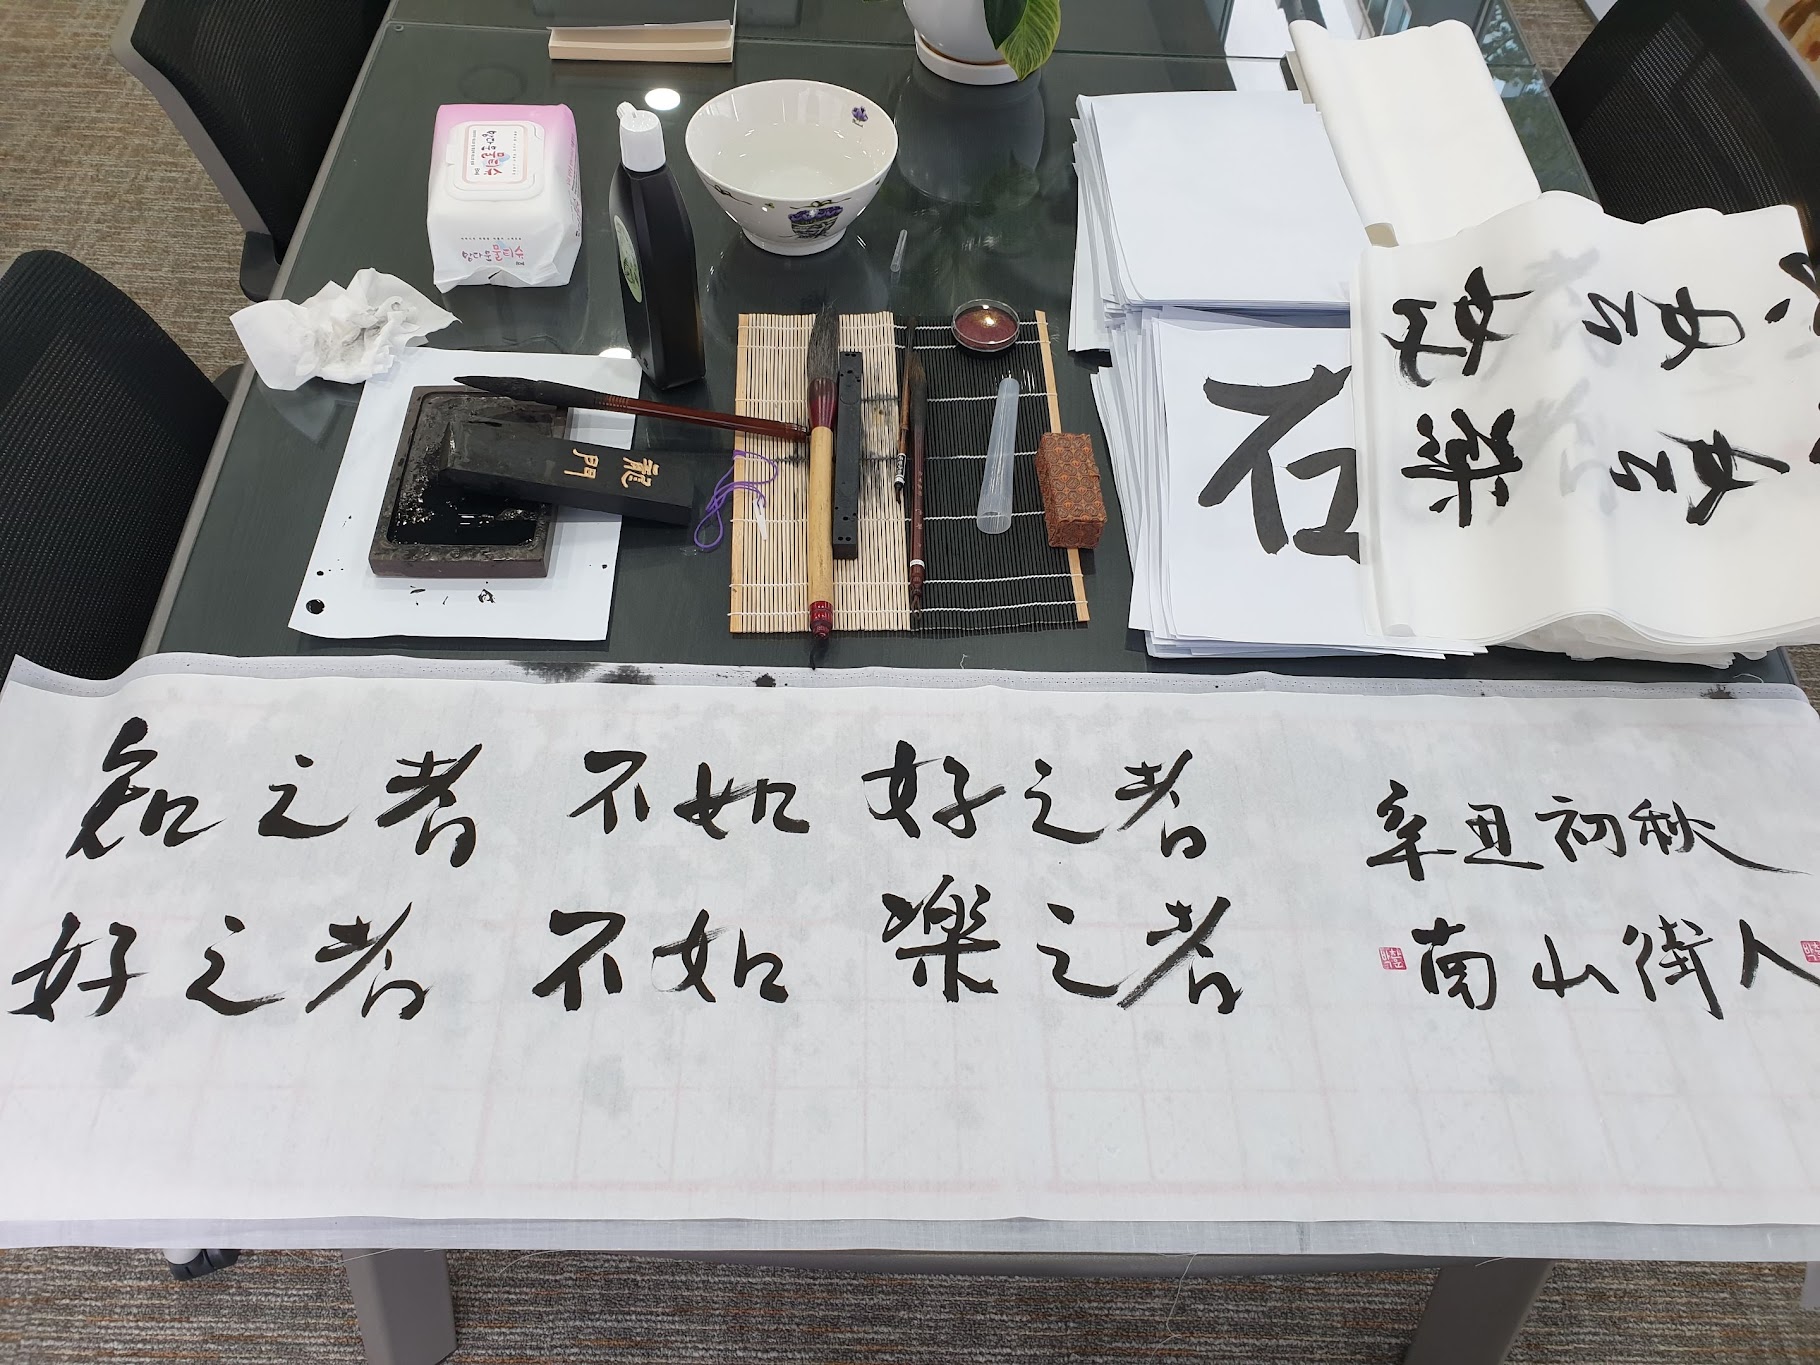 몽다물 물티슈
龍門
石
知之者 不如 好之者
好之者 不如 樂之者
辛丑初秋
南山街人